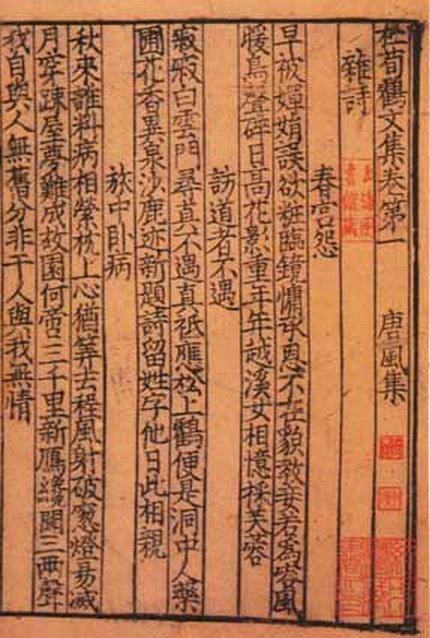 杜荀鶴文集卷第一　唐風集
雜詩
上海圖
書館藏
春宮怨
早被嬋娟誤欲粧臨鏡慵承恩不在貌教妾若為容風
暖鳥聲碎日高花影重年年越溪女相憶採芙蓉
訪道者不遇
寂寂白雲門尋真不遇真祇應松上鶴便是洞中人藥
圃花香異泉沙鹿迹新題詩留姓字他日此相親
旅中臥病
秋來誰料病相縈枕上心猶筭去程風射破窻燈易滅
月穿踈屋夢難成故園何啻三千里新鴈纔聞三兩聲
我自與人無舊分非干人與我無情